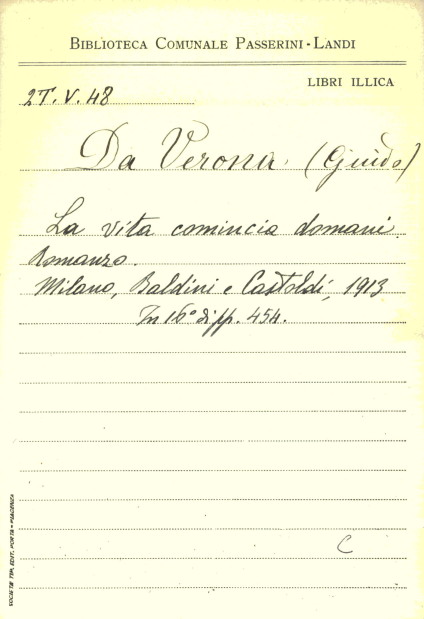 BIBLIOTECA COMUNALE PASSERINI-LANDI
LIBRI ILLICA
2T.V.48
Da Verona (Guido)
La vita comincia domani.
Romanzo.
Milano, Baldini e Castoldi, 1913
In 16° di pp. 454.
C
SOCIETÀ TIP. EDIT. PORTA - PIACENZA